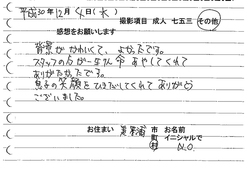 平成30年12月4日(火)
撮影項目 成人 七五三 その他
感想をお願いします
背景がかわいくて、よかったです。
スタッフの方が一生ケン命 あやしてくれて
ありがたかったです。
息子の笑顔をひきだしてくれてありがとう
ございました。
お住まい 市 お名前
町 イニシャルで
村 N.O.